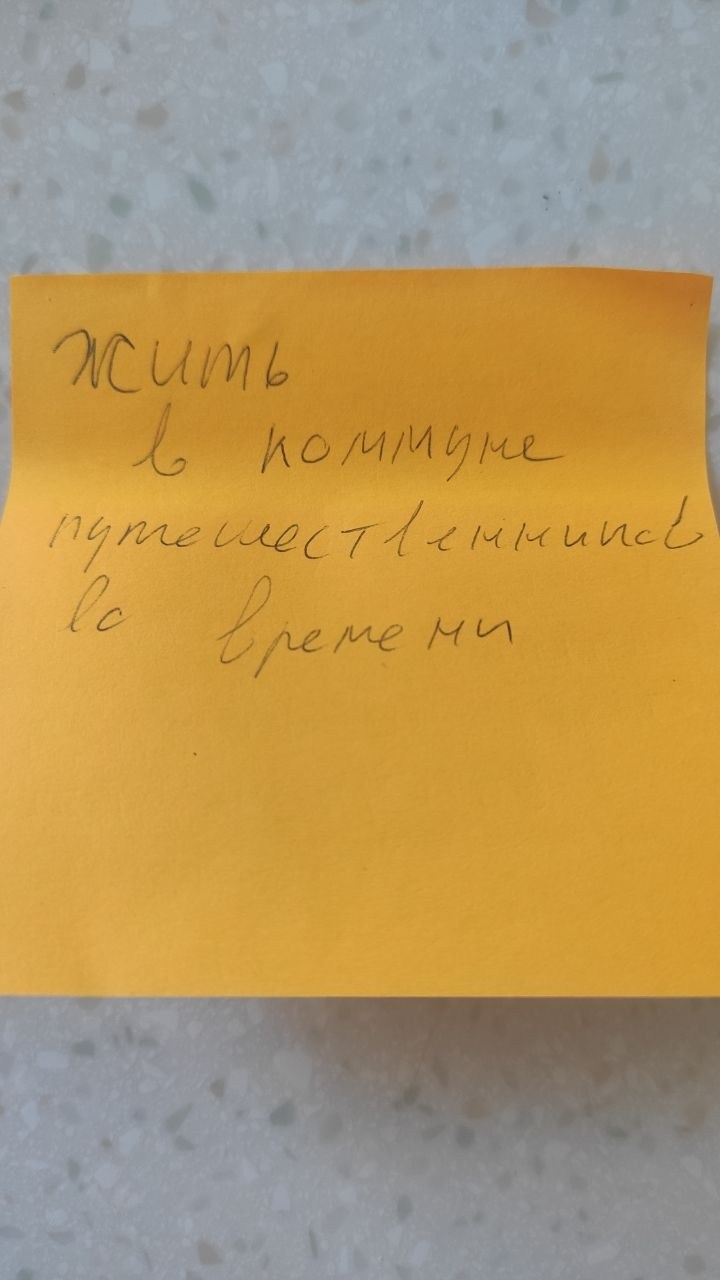 жить
в коммуне
путешественников
во времени